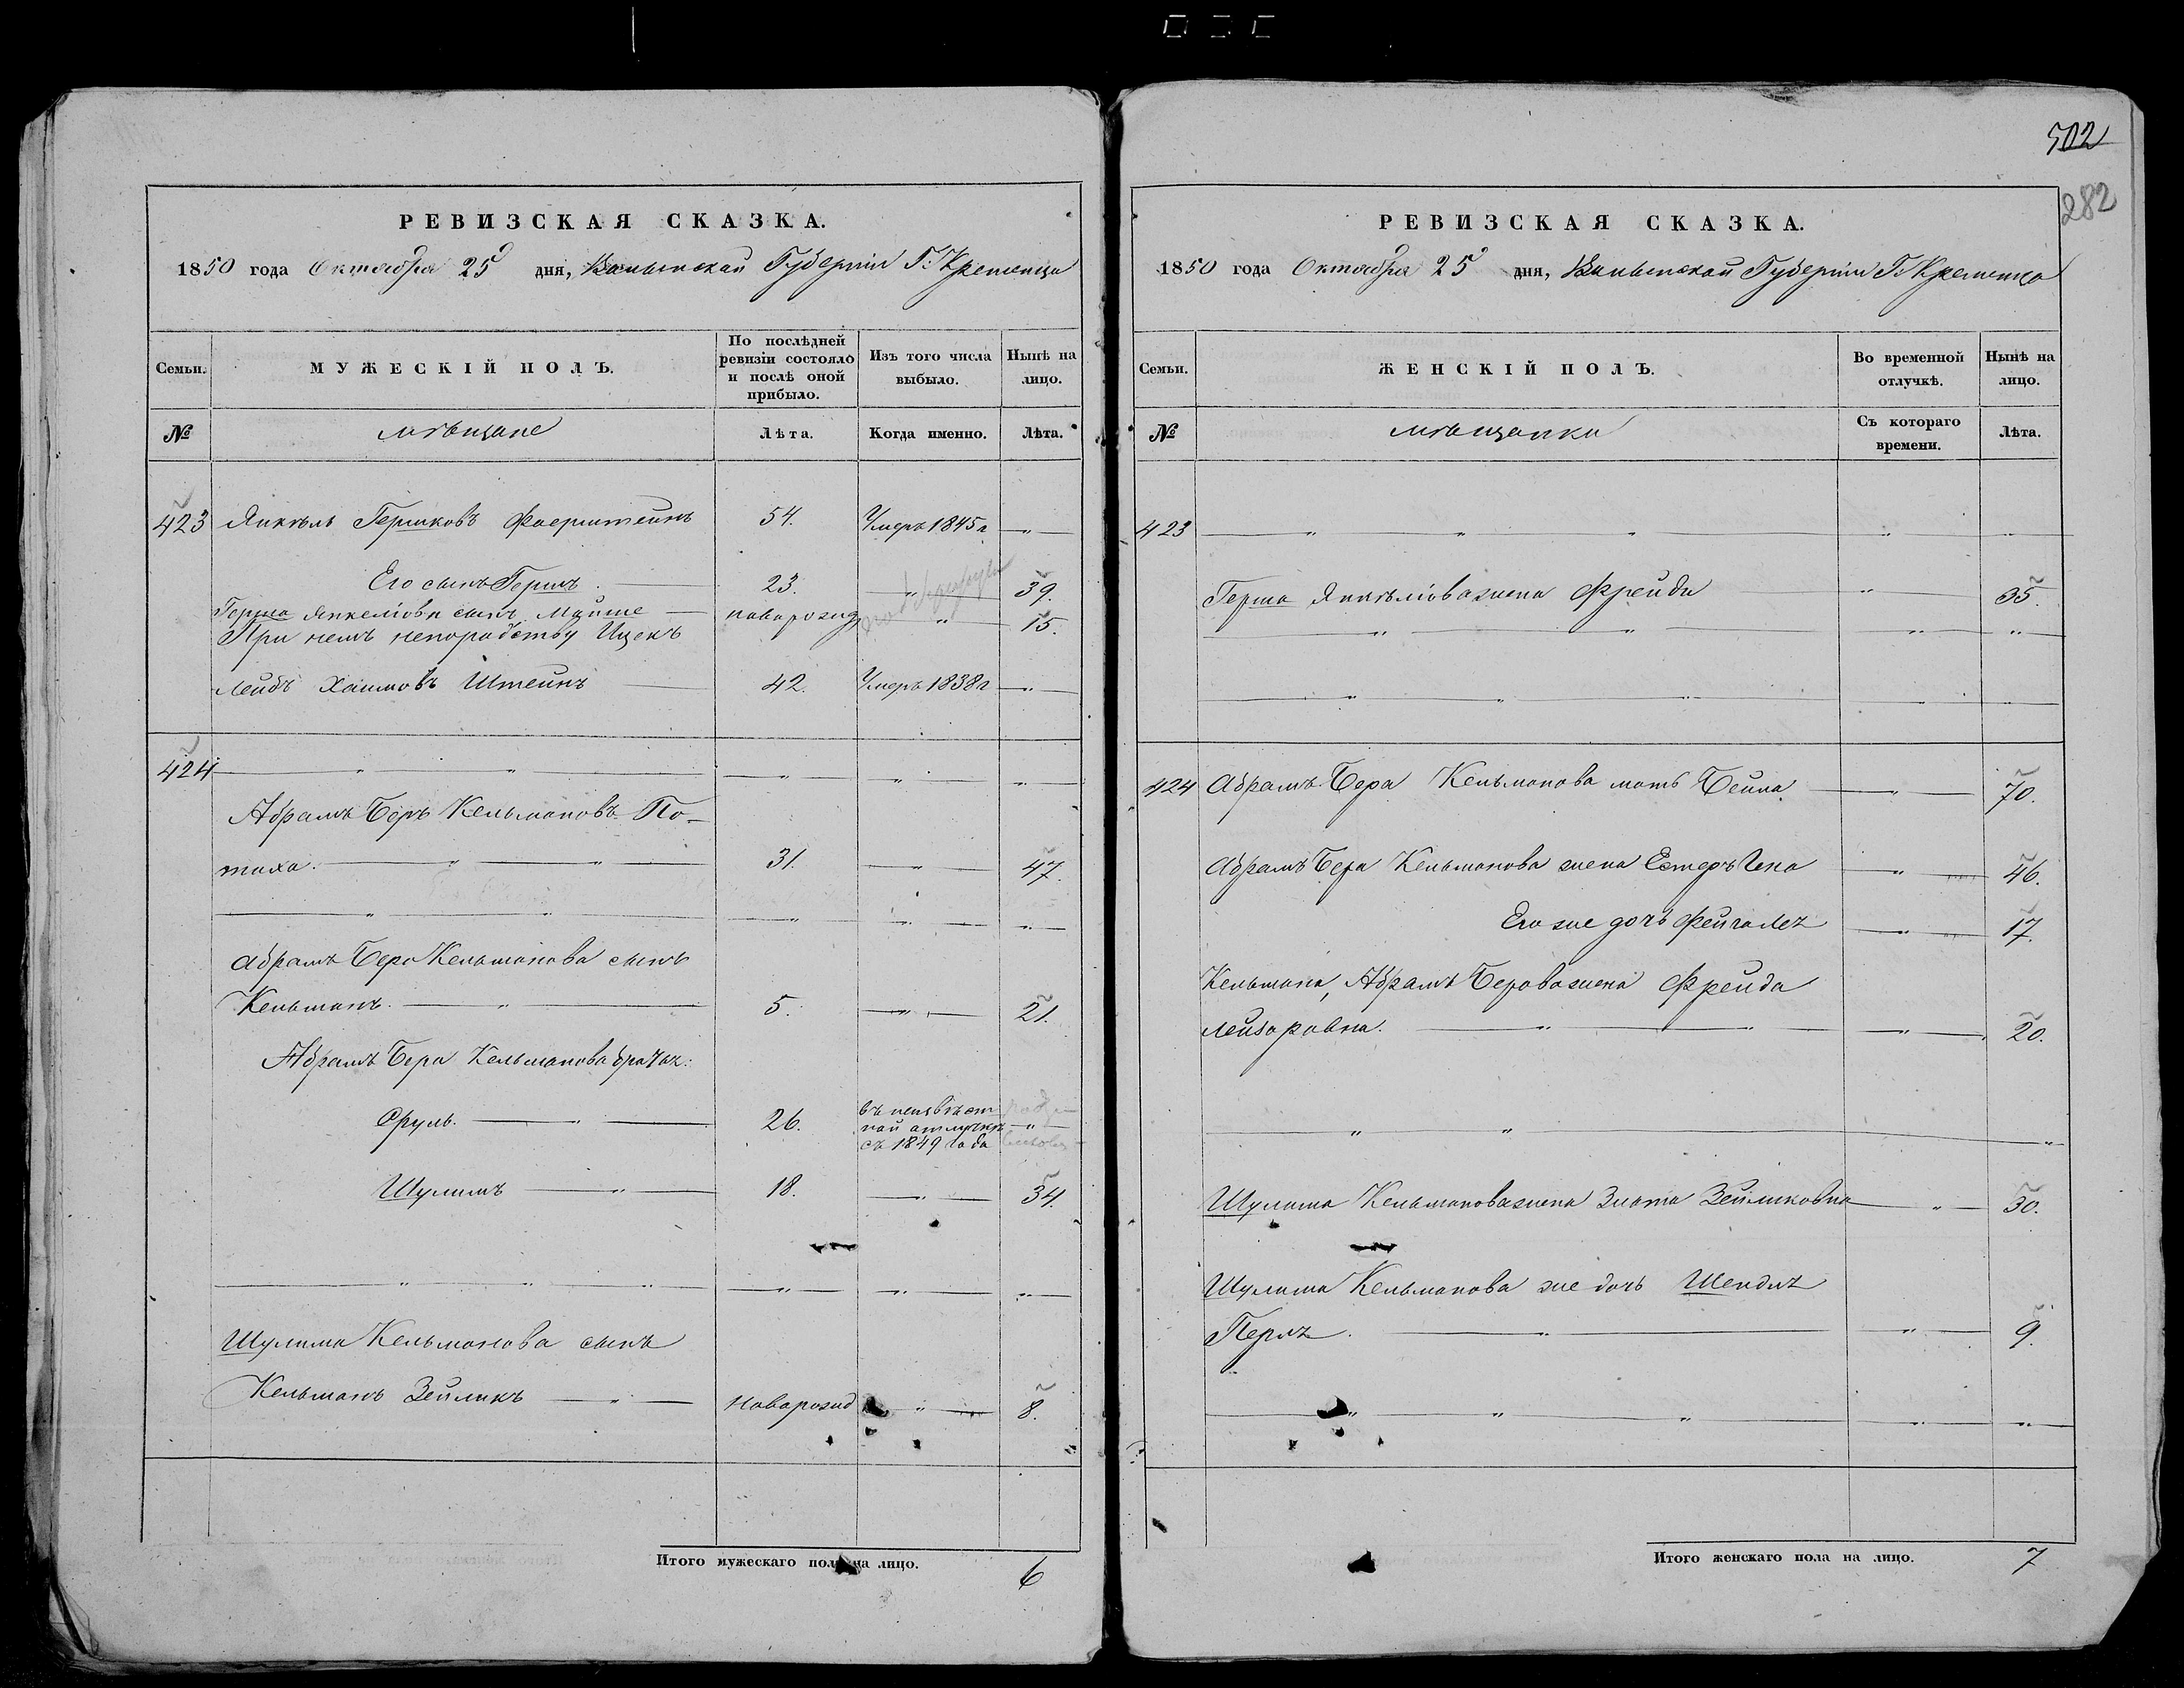 РЕВИЗСКАЯ СКАЗКА.
1850 года Октября 25 дня, Волынской Губернии Г. Кременца
Семьи. МУЖЕСКІЙ ПОЛЪ. По послѣдней ревизіи состояло и послѣ оной прибыло. Изъ того числа выбыло. Нынѣ на лицо.
№ мѣщане Лѣта. Когда именно. Лѣта.
423 Янкель Гершковъ Фаерштейнъ 54. Умеръ 1845 г „
Его сынъ Гершъ 23. „ 39.
Герша Янкеліова сынъ Мойше новорожд „ 15.
При немъ непородству Ицекъ
Лейбъ Хаимовъ Штейнъ 42. Умеръ 1838 г „
424 „ „ „ „ „
Абрамъ Беръ Кельмановъ По-
тиха. „ „ 31. „ 47.
„ „ „ „ „
Абрамъ Бера Кельманова сынъ
Кельманъ. „ 5. „ 21.
Абрамъ Бера Кельманова братья:
Сруль. „ 26. въ неизвѣст
ной отлучкѣ „
съ 1849 года
Шулимъ „ 18. „ 34.
„ „ „ „ „ „
Шулима Кельманова сынъ
Кельманъ Зейликъ „ новорожд „ 8.
Итого мужескаго пола на лицо. 6
502
282
РЕВИЗСКАЯ СКАЗКА.
1850 года Октября 25 дня, Волынской Губерніи Г. Кременца
Семьи. ЖЕНСКІЙ ПОЛЪ. Во временной отлучкѣ. Нынѣ на лицо.
№ мѣщанки Съ котораго времени. Лѣта.
423 „ „ „ „ „
Герша Янкеліова жена Фрейда „ 35.
„ „ „ „
„ „ „ „ „
424 Абрамъ Бера Кельманова мать Бейла „ 70.
Абрамъ Бера Кельманова жена Естеръ Чека „ 46.
Его же дочь Фейга Леа „ 17.
Кельмана, Абрамъ Берова жена Фрейда
Лейзоровна. „ „ „ 20.
„ „ „
Шулима Кельманова жена Злата Зейликовна „ 30.
Шулима Кельманова же дочь Шендля
Перля. „ „ 9.
„ „ „ „ „
Итого женскаго пола на лицо. 7